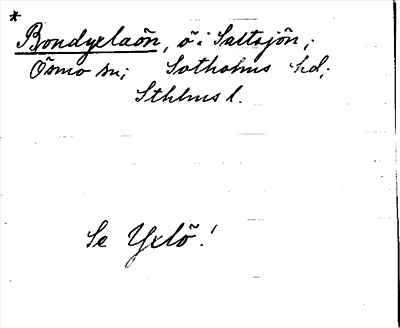 *
Bondyxlaön, ö i Saltsjön;
Ösmo sn; Sotholms hd;
Sthlms l.
Se Yxlö!